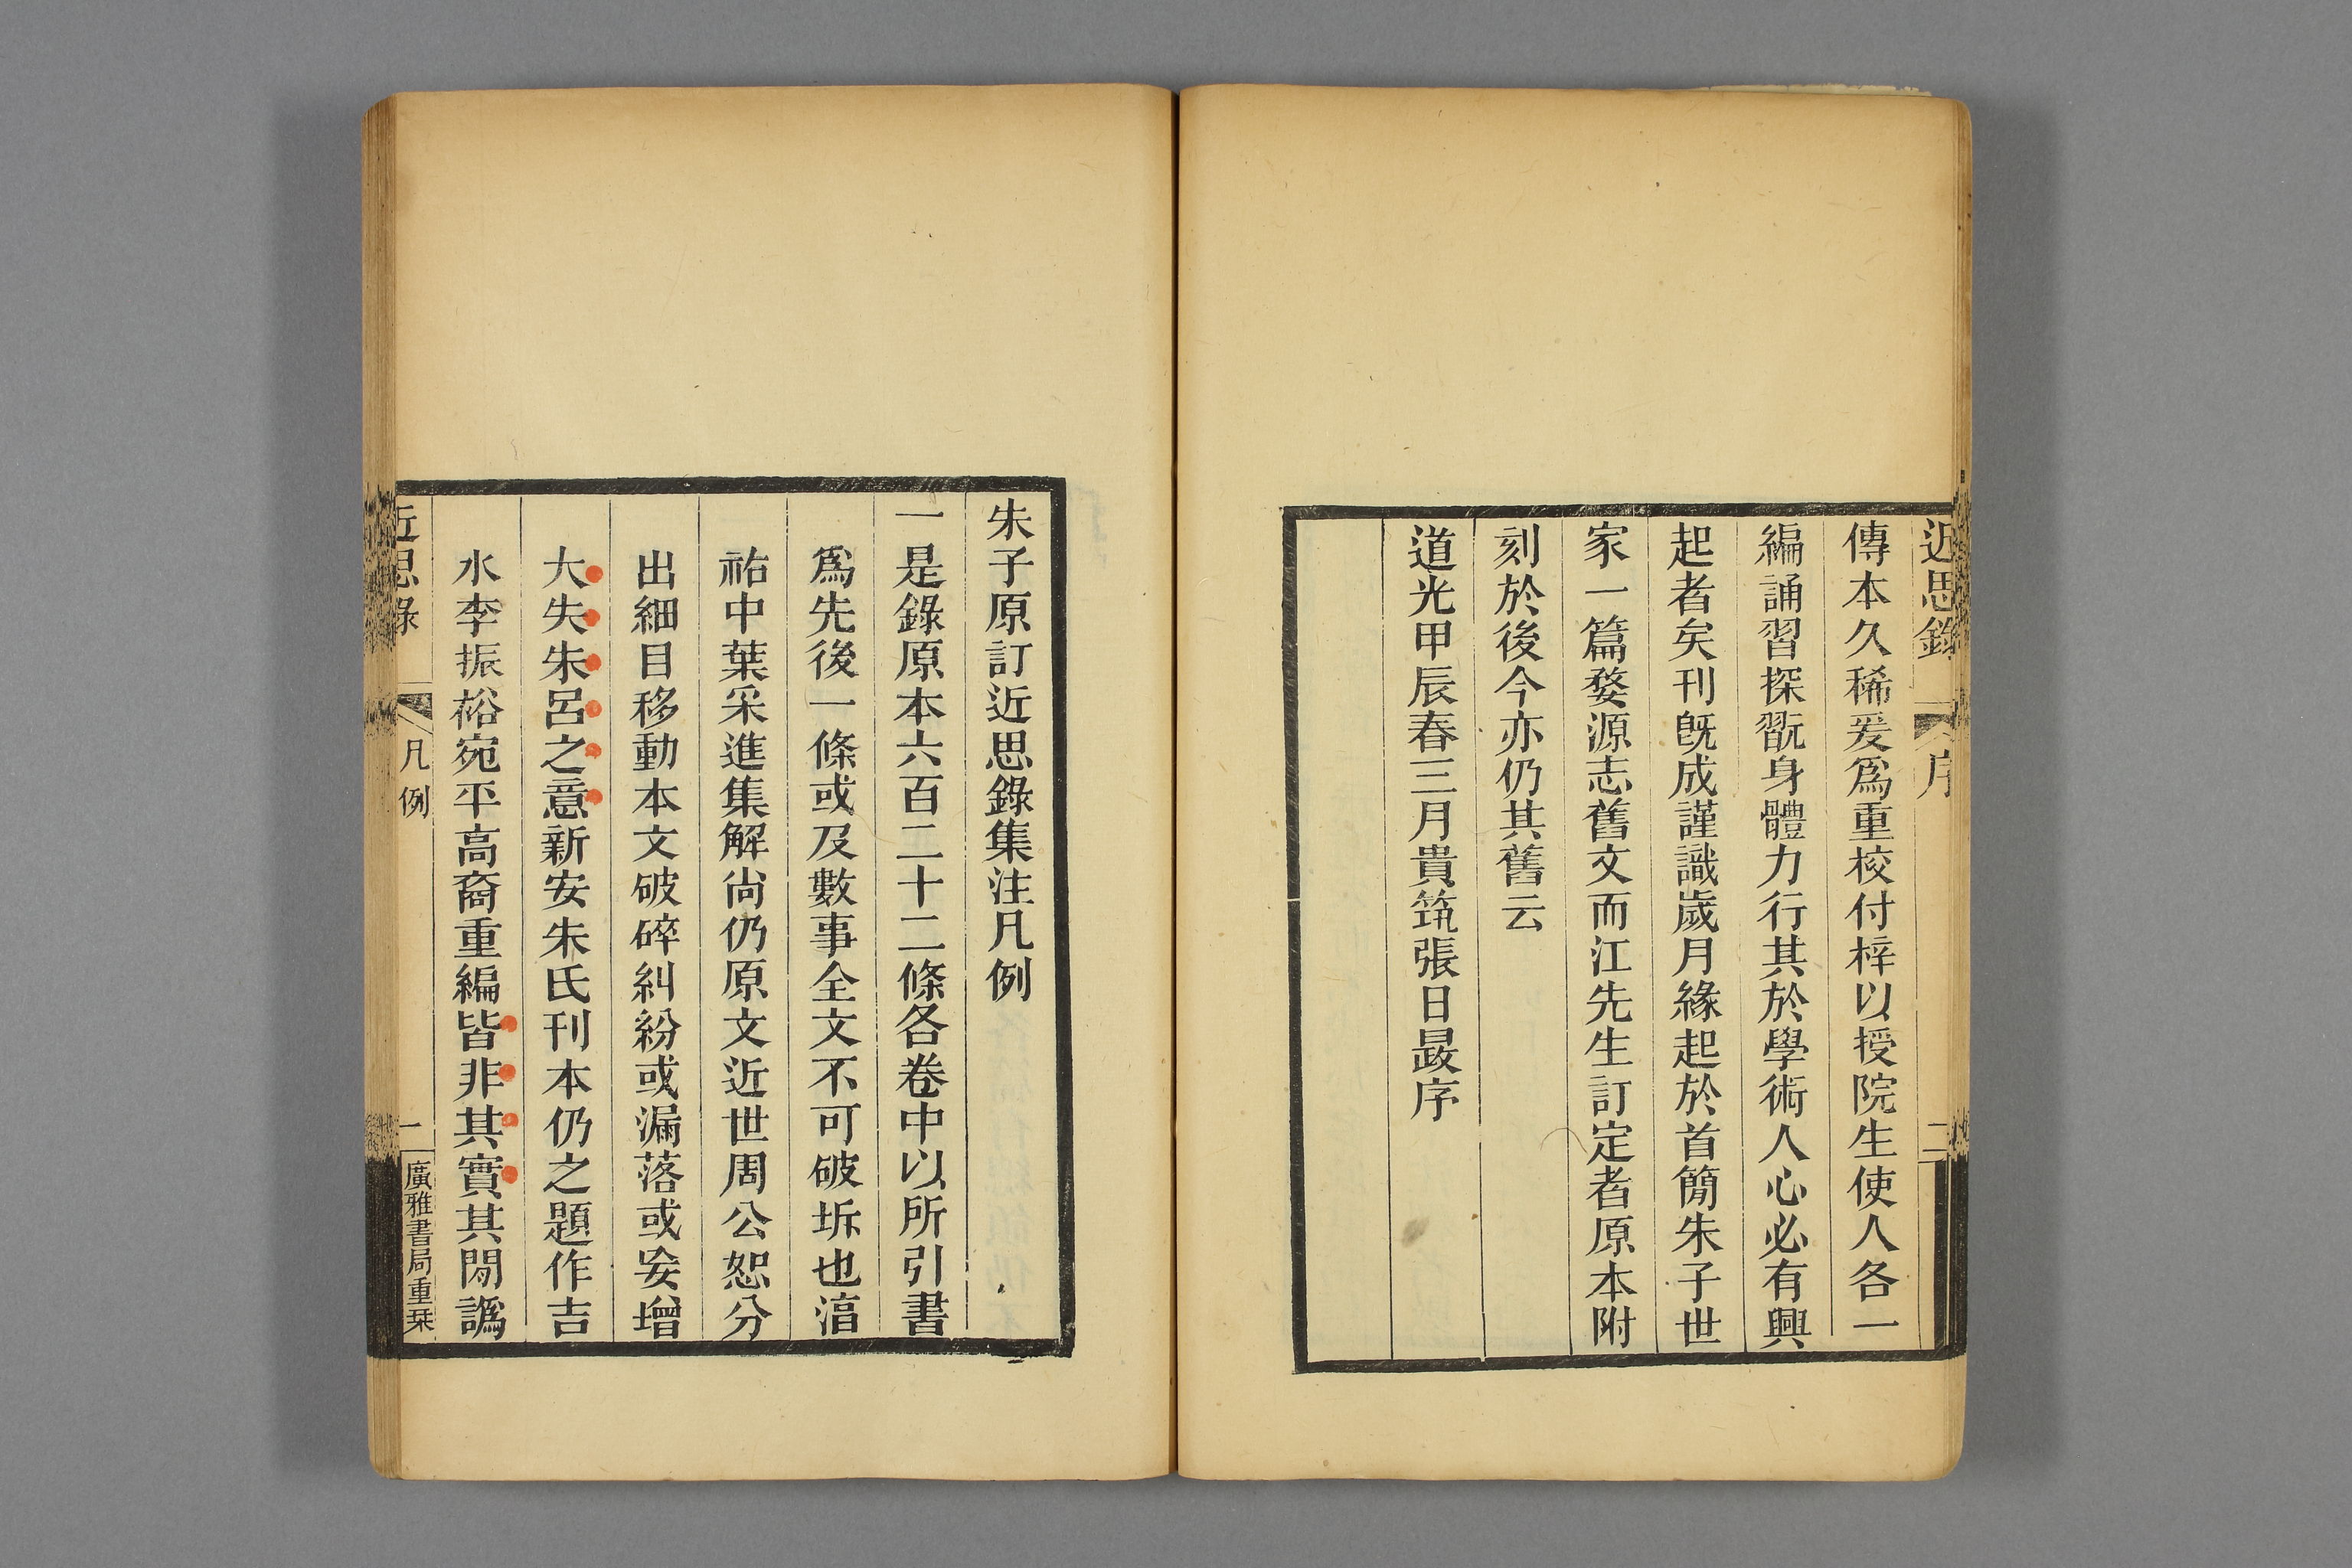 近思錄 序 二
傳本久稀爰爲重校付梓以授院生使人各一
編誦習探翫身體力行其於學術人心必有興
起者矣刊旣成謹識歲月緣起於首簡朱子世
家一篇婺源志舊文而江先生訂定者原本附
刻於後今亦仍其舊云
道光甲辰春三月貴筑張日晸序
朱子原訂近思錄集注凡例
一是錄原本六百二十二條各卷中以所引書
爲先後一條或及數事全文不可破坼也湻
祐中葉采進集解尙仍原文近世周公恕分
出細目移動本文破碎糾紛或漏落或妄增
大失朱呂之意新安朱氏刊本仍之題作吉
水李振裕宛平高裔重編皆非其實其閒譌
近思錄 凡例 一 廣雅書局重栞